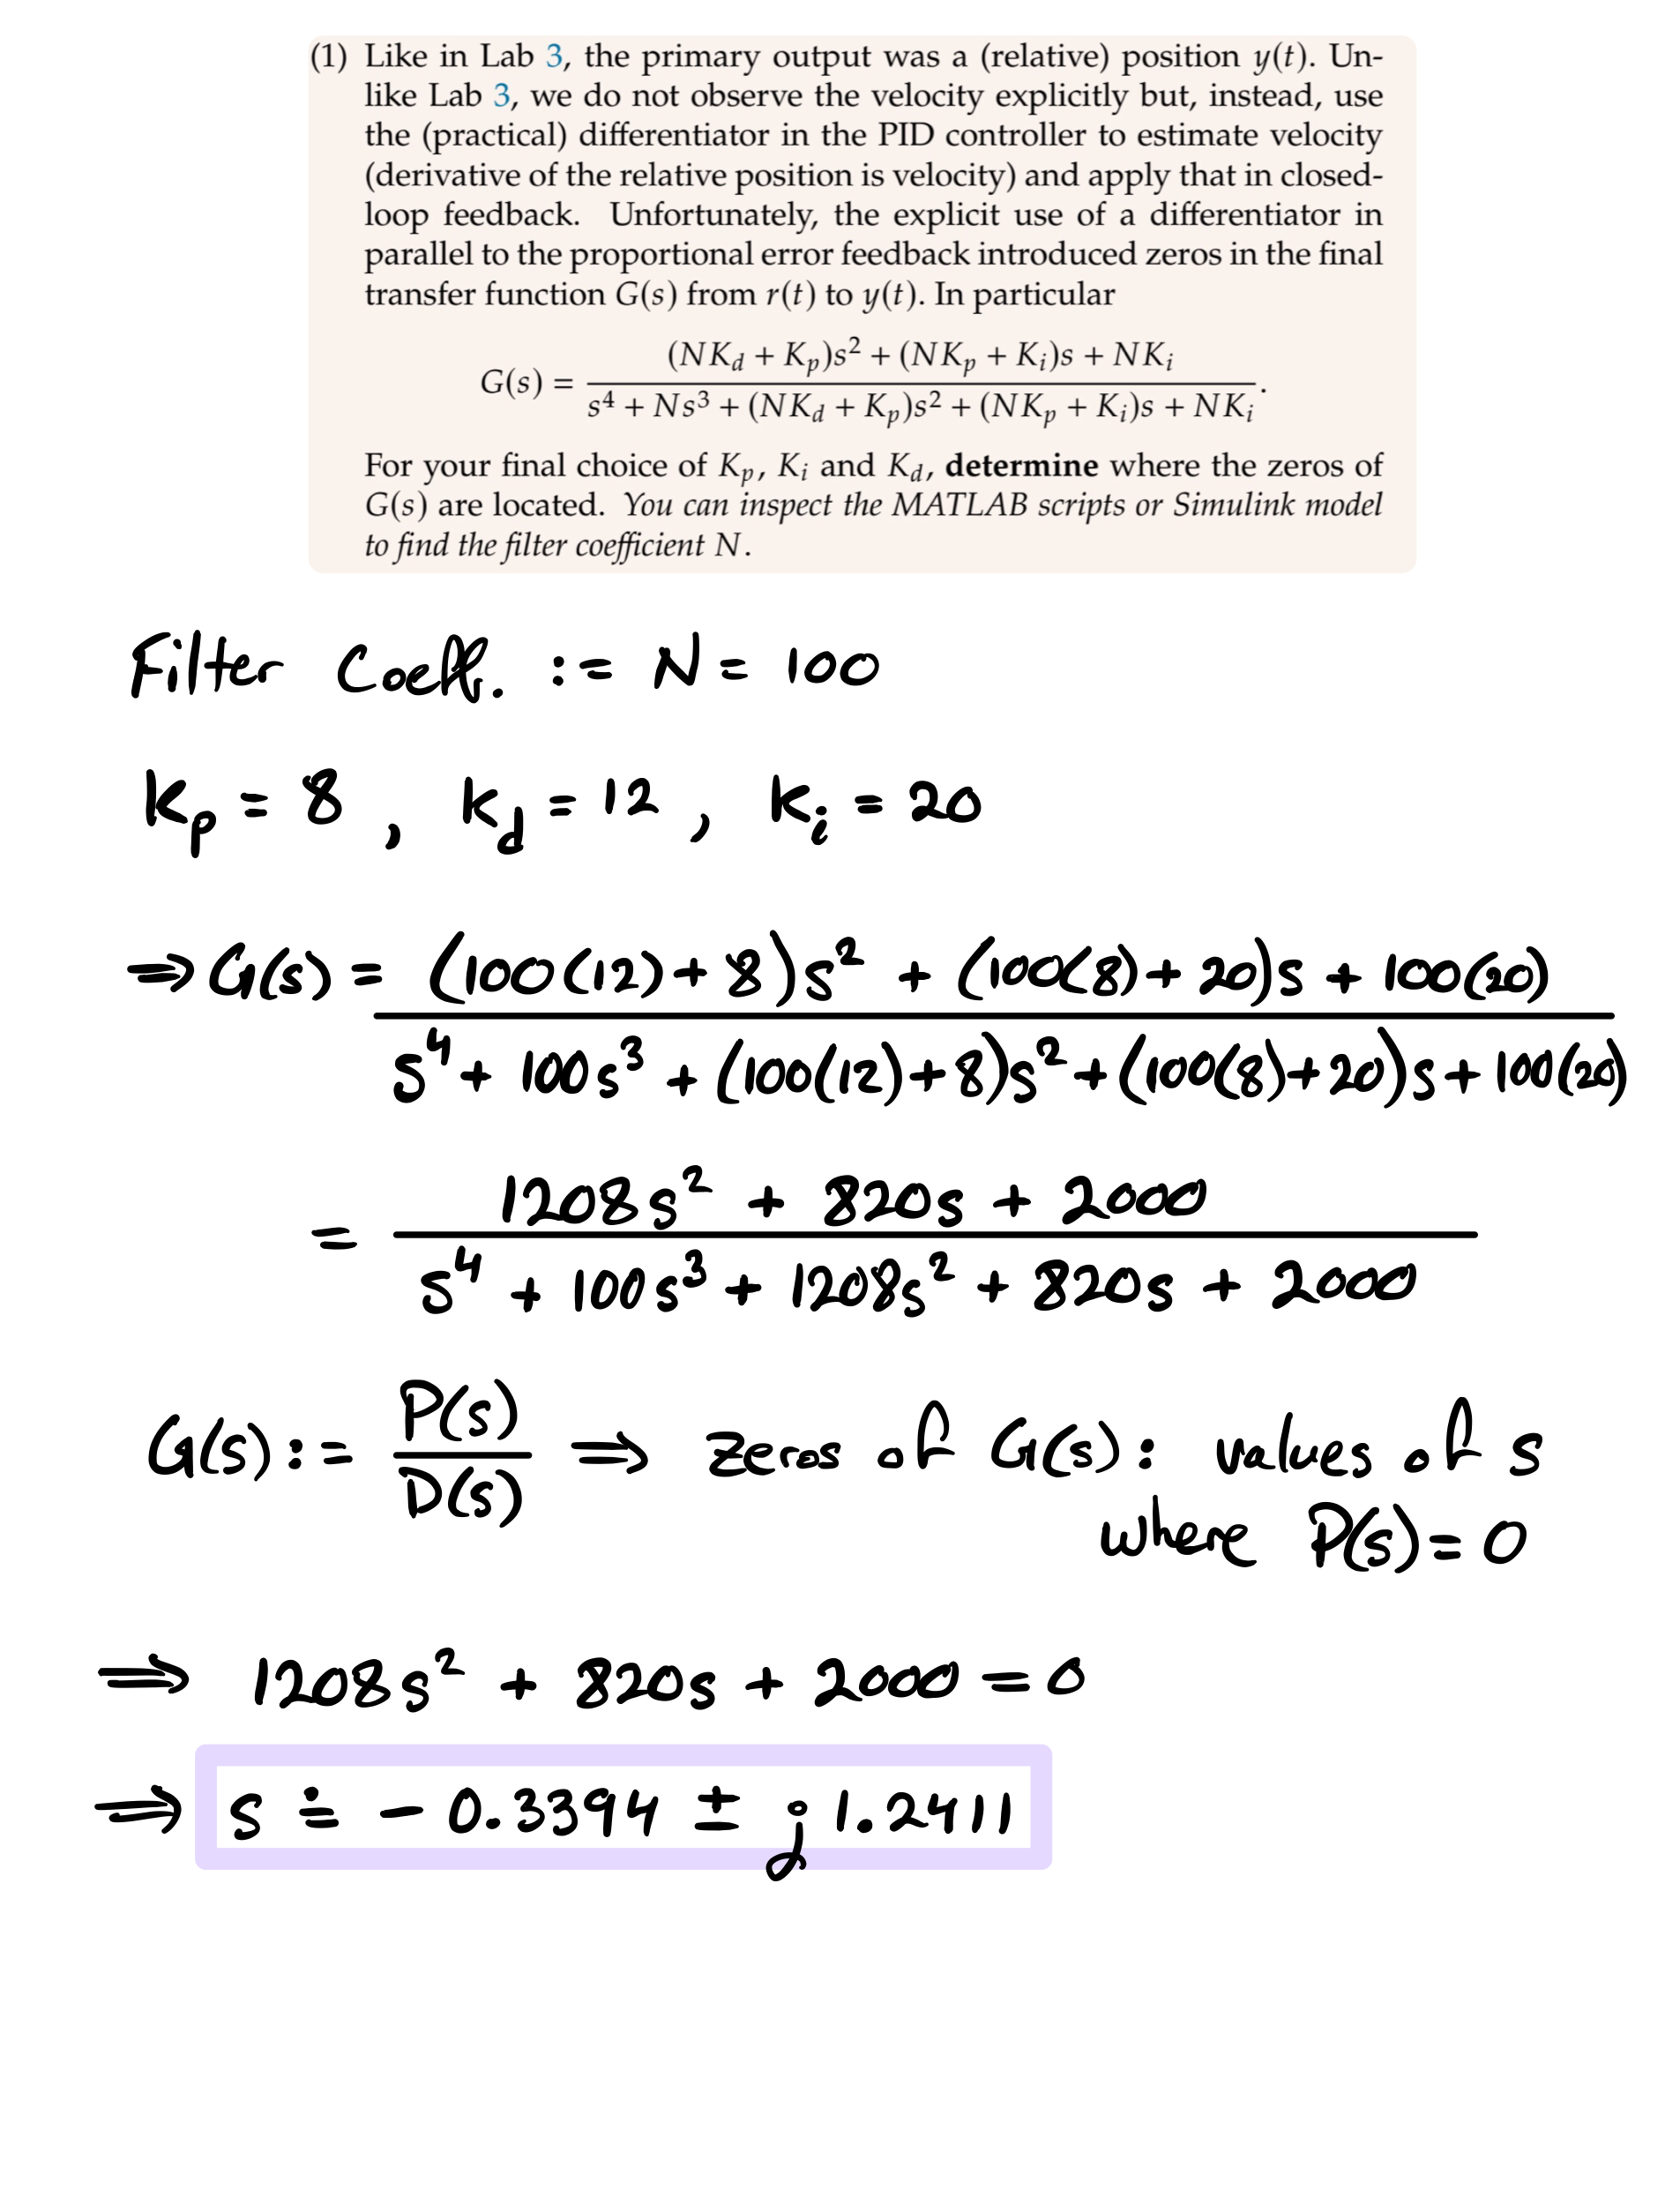 (1) Like in Lab 3, the primary output was a (relative) position y(t). Un-
like Lab 3, we do not observe the velocity explicitly but, instead, use
the (practical) differentiator in the PID controller to estimate velocity
(derivative of the relative position is velocity) and apply that in closed-
loop feedback. Unfortunately, the explicit use of a differentiator in
parallel to the proportional error feedback introduced zeros in the final
transfer function G(s) from r(t) to y(t). In particular
G(s) = \frac{(NK_d + K_p)s^2 + (NK_p + K_i)s + NK_i}{s^4 + Ns^3 + (NK_d + K_p)s^2 + (NK_p + K_i)s + NK_i}.
For your final choice of K_p, K_i and K_d, determine where the zeros of
G(s) are located. You can inspect the MATLAB scripts or Simulink model
to find the filter coefficient N.
Filter Coeff. := N = 100
K_p = 8 , K_d = 12 , K_i = 20
⇒ G(s) = \frac{(100(12) + 8)s^2 + (100(8) + 20)s + 100(20)}{s^4 + 100s^3 + (100(12) + 8)s^2 + (100(8) + 20)s + 100(20)}
= \frac{1208s^2 + 820s + 2000}{s^4 + 100s^3 + 1208s^2 + 820s + 2000}
G(s) := \frac{P(s)}{D(s)} ⇒ zeros of G(s): values of s
where P(s) = 0
⇒ 1208s^2 + 820s + 2000 = 0
⇒ s ≐ - 0.3394 ± j 1.2411